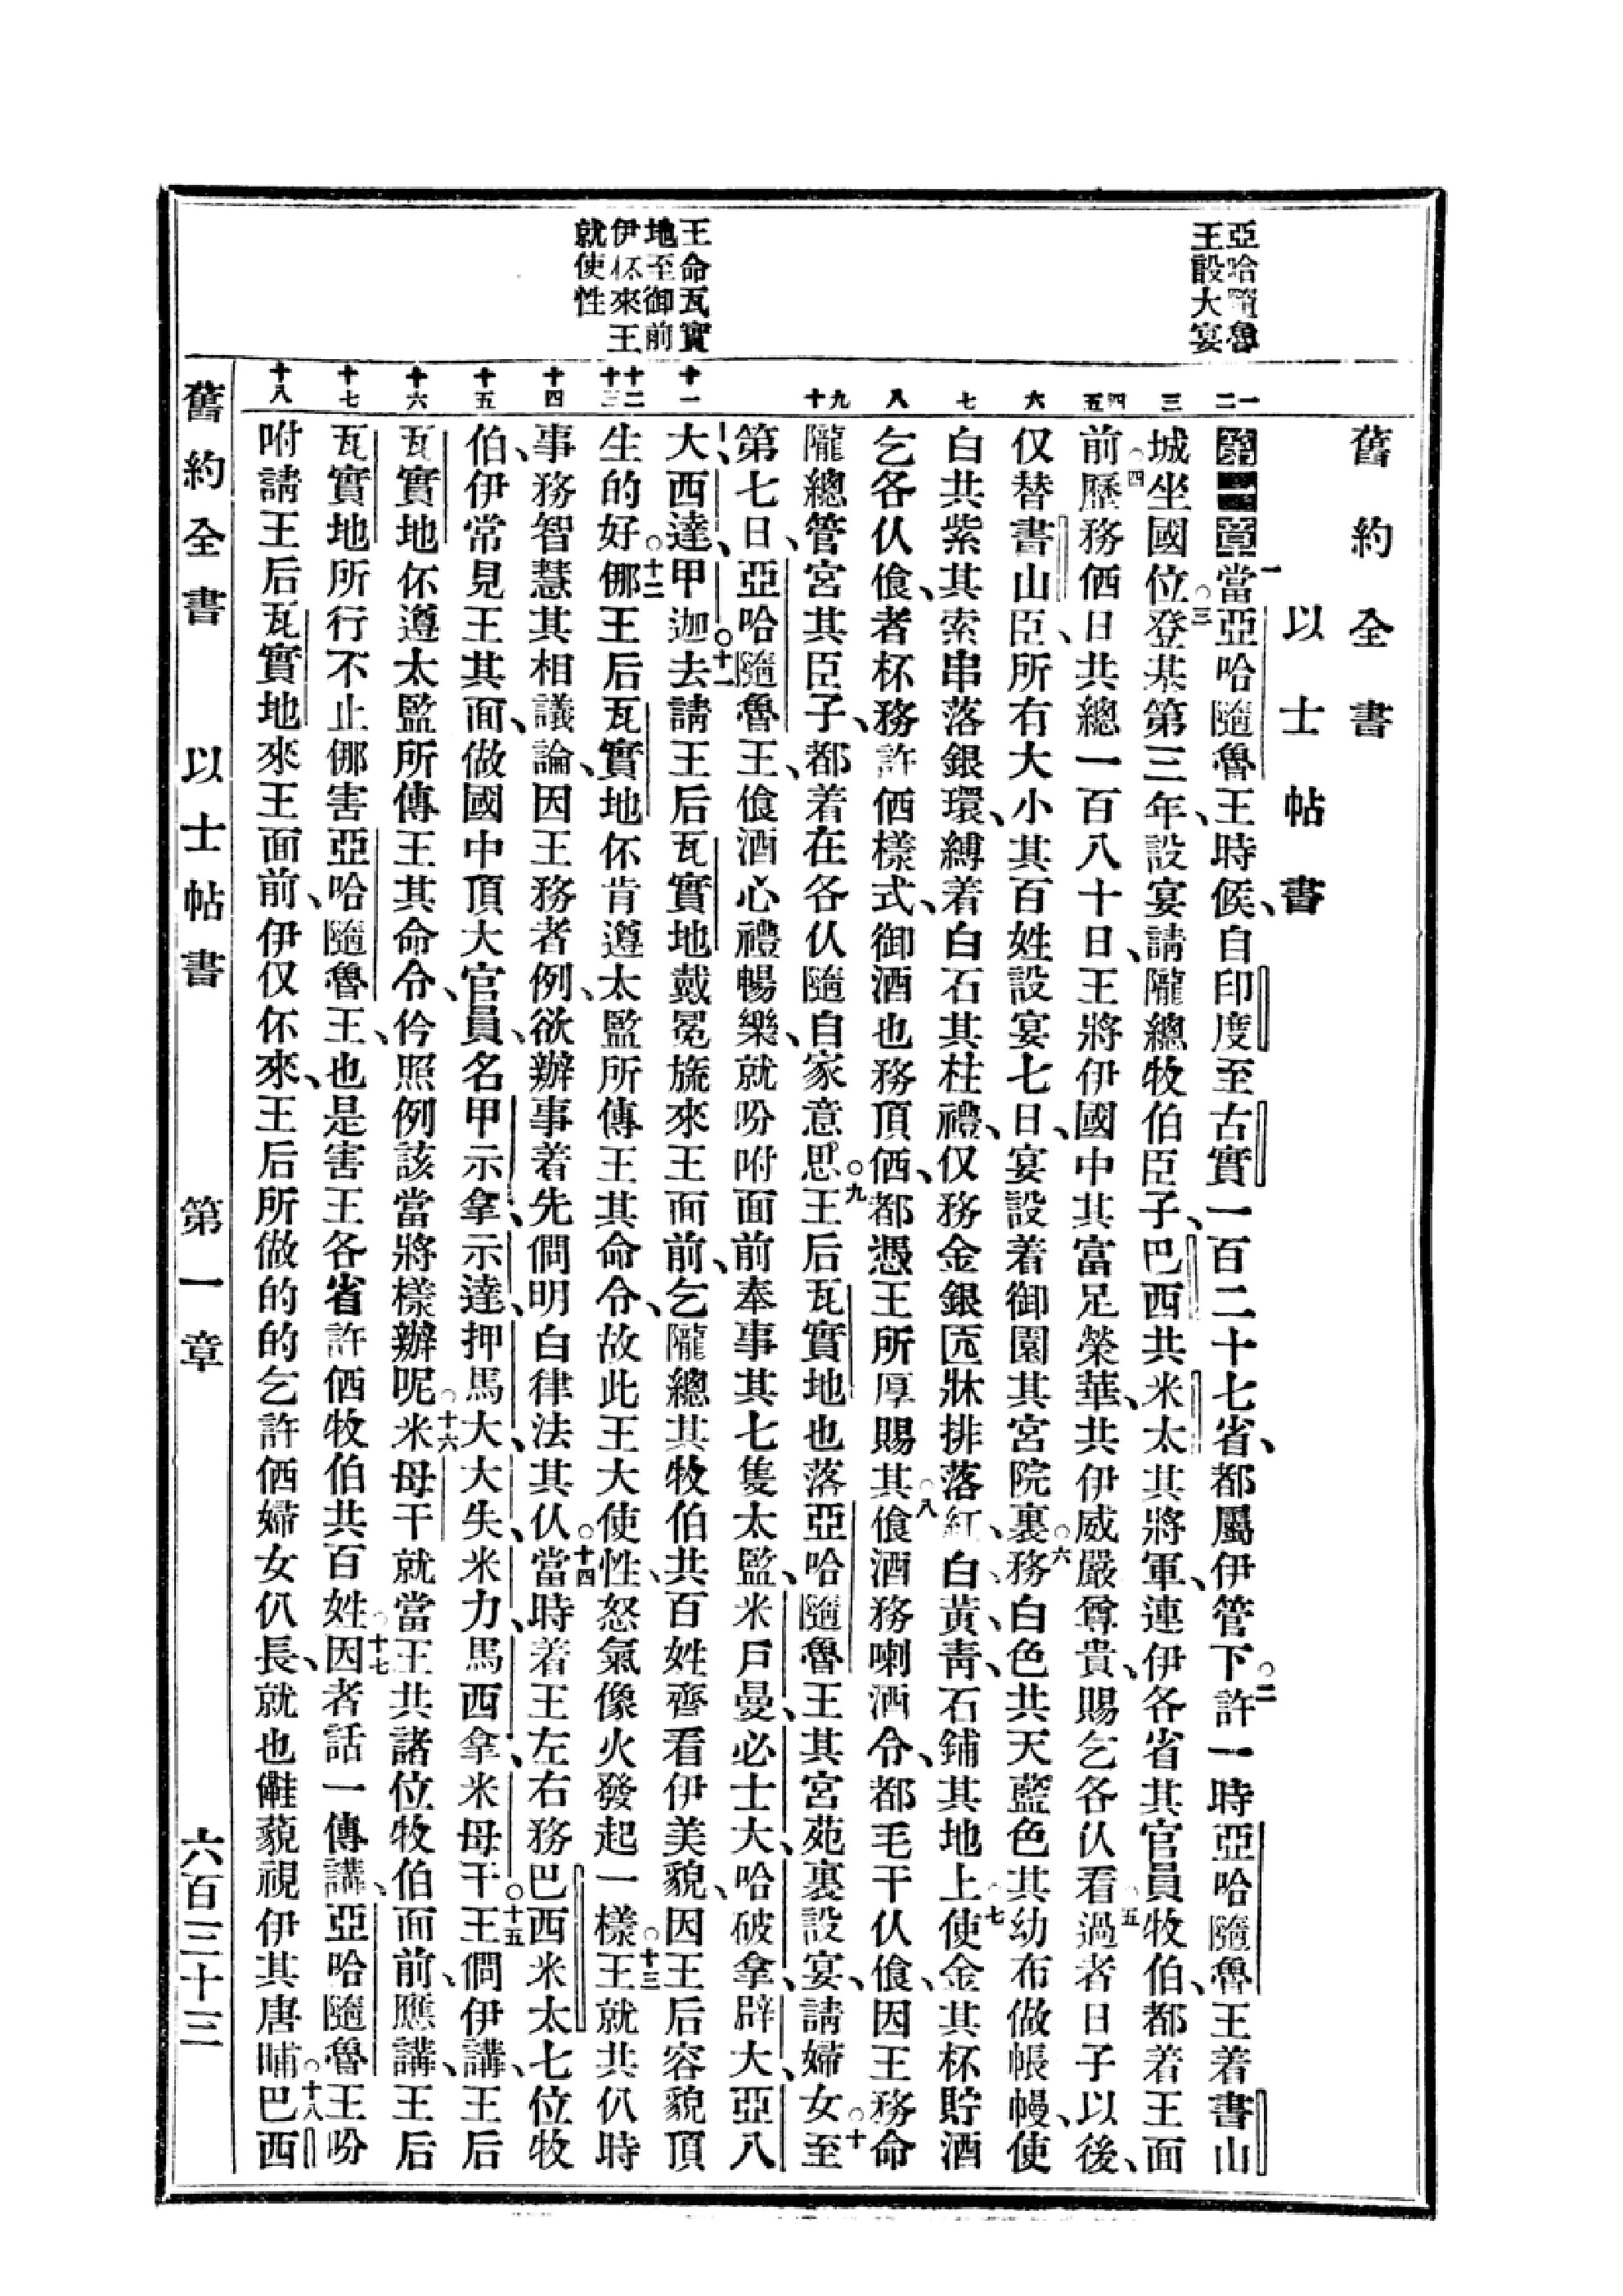 亞哈隨魯
王設大宴
王命瓦實
地至御前
伊伓來王
就使性
一 二
三
四 五
六
七
八
九 十
十一
十二 十三
十四
十五
十六
十七
十八
舊約全書
以士帖書
第一章 一當亞哈隨魯王時候、自印度至古實一百二十七省、都屬伊管下○二許一時亞哈隨魯王着書山
城坐國位○三登基第三年、設宴請隴總牧伯臣子、巴西共米太其將軍、連伊各省其官員牧伯、都着王面
前○四歷務㑚日共總一百八十日、王將伊國中其富足榮華、共伊威嚴尊貴、賜乞各仈看○五過者日子以後、
仅替書山臣、所有大小其百姓設宴七日、宴設着御園其宮院裏○六務白色共天藍色其幼布做帳幔、使
白共紫其索串落銀環、縛着白石其柱禮、仅務金銀匟牀排落紅、白、黃、靑、石鋪其地上○七使金其杯貯酒
乞各仈飡、者杯務許㑚樣式、御酒也務頂㑚、都憑王所厚賜其○八飡酒務喇酒令、都毛干仈飡、因王務命
隴總管宮其臣子、都着在各仈隨自家意思○九王后瓦實地也落亞哈隨魯王其宮苑裏設宴、請婦女○十至
第七日、亞哈隨魯王、飡酒心禮暢樂、就吩咐面前奉事其七隻太監、米戶曼、必士大、哈破拿、辟大、亞八
大、西達、甲迦○十一去請王后瓦實地戴冕旒來王面前、乞隴總其牧伯共百姓齊看伊美貌、因王后容貌頂
生的好○十二㑚王后瓦實地伓肯遵太監所傳王其命令、故此王大使性、怒氣像火發起一樣○十三王就共仈時
事務智慧其相議論、因王務者例、欲辦事着先僩明白律法其仈○十四當時着王左右務巴西米太七位牧
伯、伊常見王其面、做國中頂大官員、名甲示拿、示達、押馬大、大失、米力、馬西拿、米母干○十五王僩伊講、王后
瓦實地伓遵太監所傳王其命令、仱照例該當將樣辦呢○十六米母干就當王共諸位牧伯面前、應講、王后
瓦實地所行不止㑚害亞哈隨魯王、也是害王各省許㑚牧伯共百姓○十七因者話一傳講、亞哈隨魯王吩
咐請王后瓦實地來王面前、伊仅伓來、王后所做的的乞許㑚婦女仈長、就也䧹藐視伊其唐晡○十八巴西
舊約全書 以士帖書 第一章 六百三十三